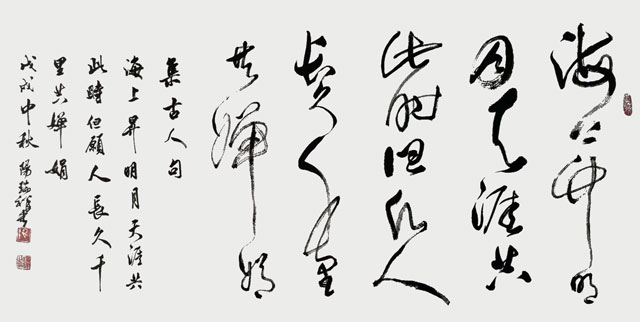 海上昇明
月天涯共
此時但願人
長久千里
共嬋娟
集古人句
海上昇明月天涯共
此時但願人長久千
里共嬋娟
戊戌中秋